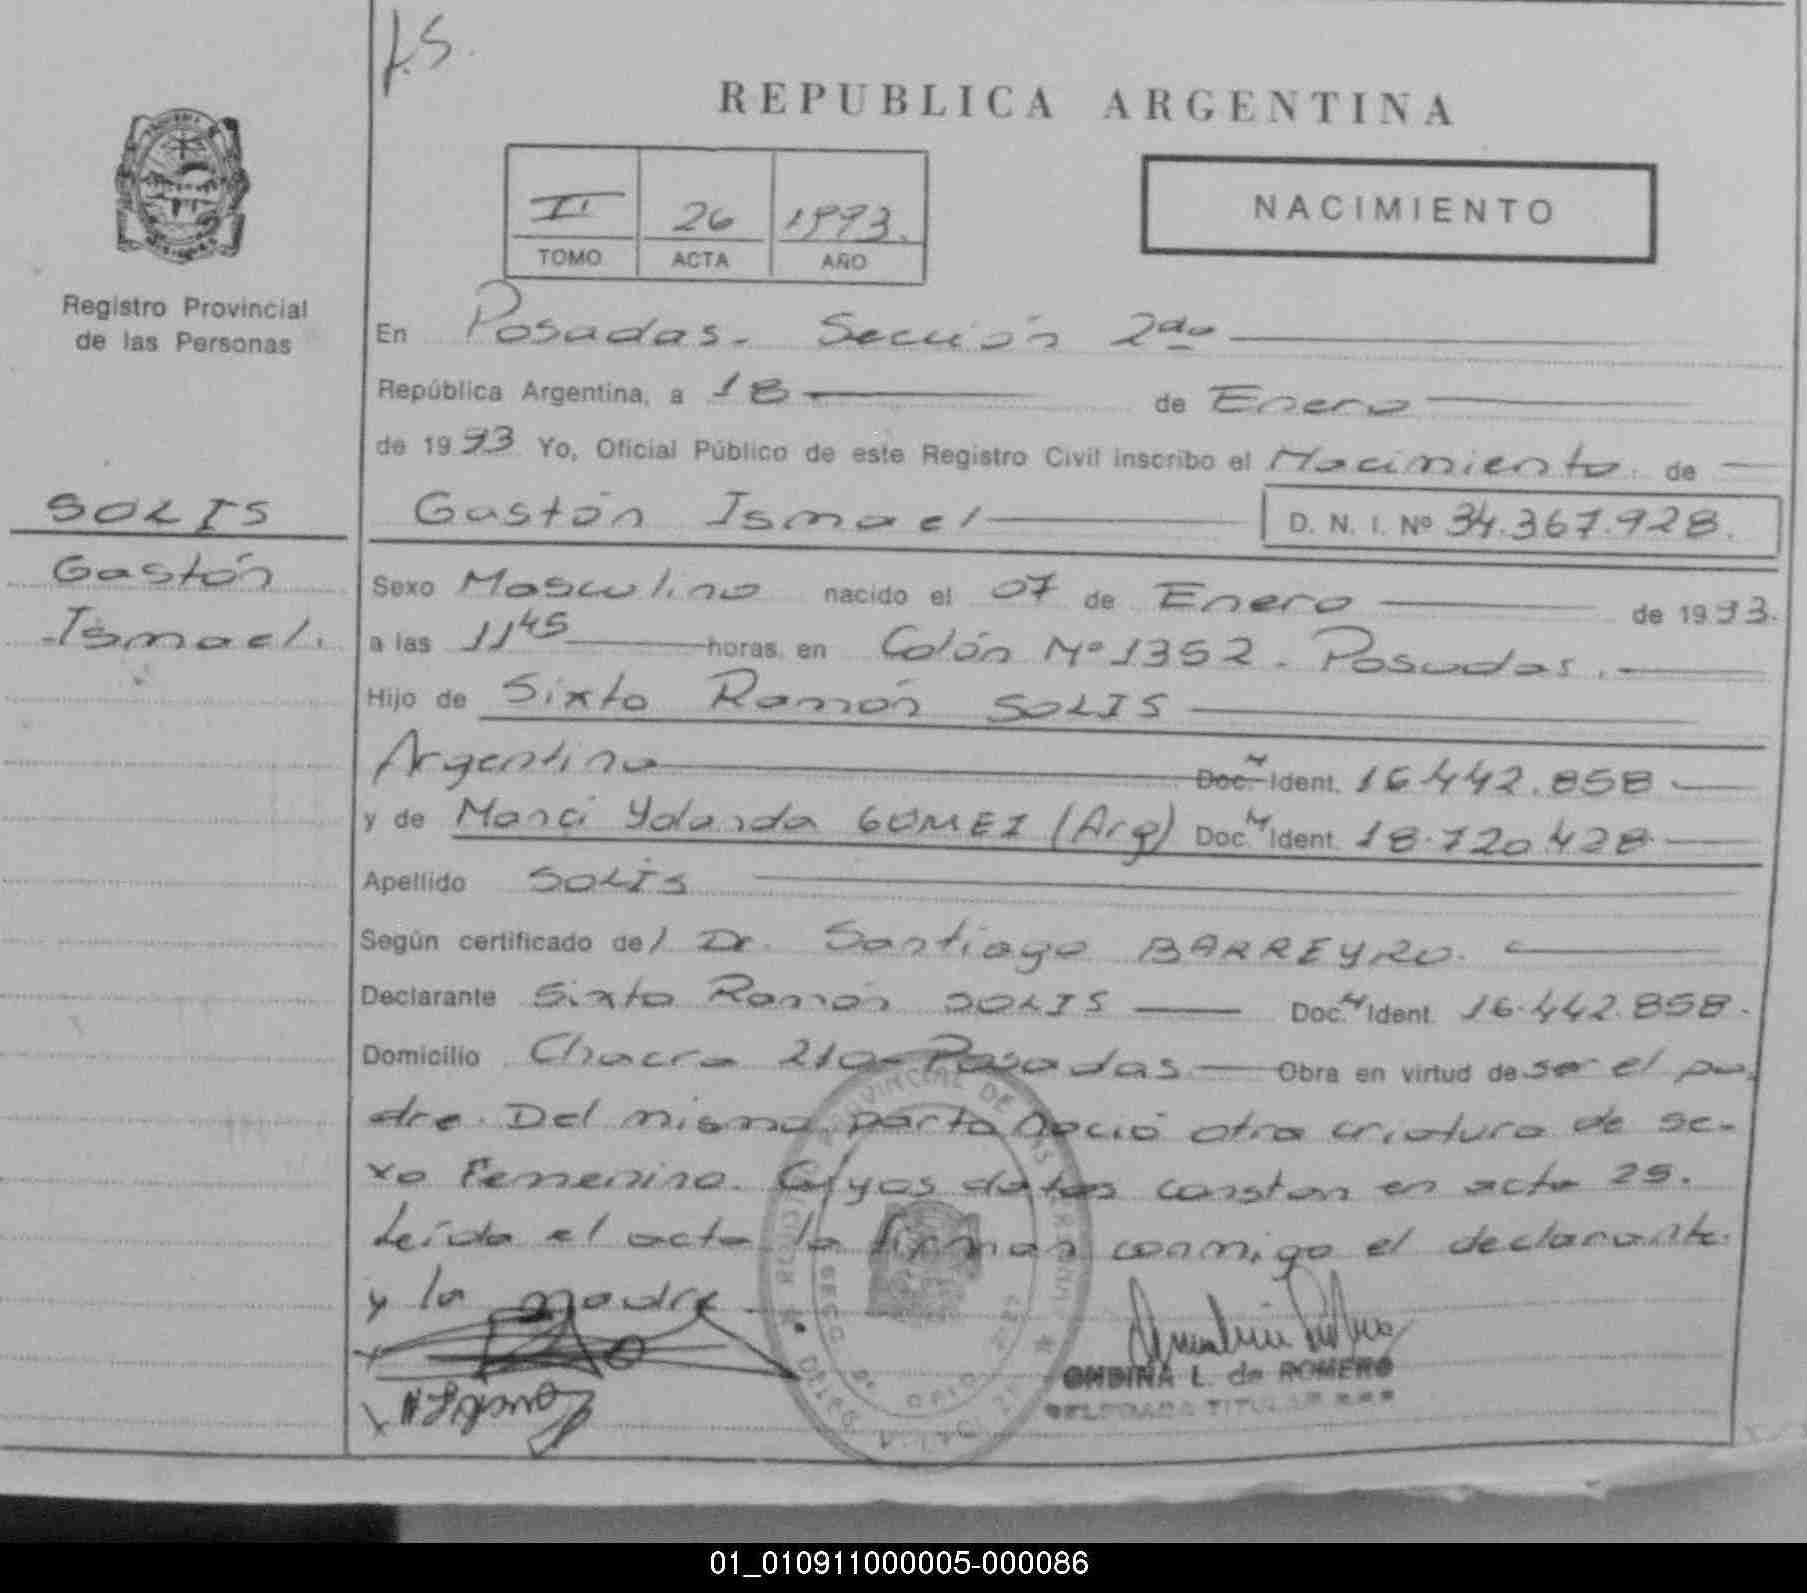 f.S.
REPUBLICA ARGENTINA
II 26 1993.
TOMO ACTA AÑO
NACIMIENTO
Registro Provincial
de las Personas
SOLIS
Gastón
Ismael.
En Posadas. Sección 2da
República Argentina, a 18 de Enero
de 1993 Yo, Oficial Público de este Registro Civil inscribo el Nacimiento de
Gastón Ismael D. N. I. Nº 34.367.928.
Sexo Masculino nacido el 07 de Enero de 1993.
a las 11 45 horas en Colón Nº 1352. Posadas.
Hijo de Sixto Ramón SOLIS
Argentino Doc. Ident. 16.442.858
y de Marci Yolanda GOMEZ (Arg) Doc. Ident. 18.720.428
Apellido SOLIS
Según certificado del Dr. Santiago BARREYRO.
Declarante Sixto Ramón SOLIS Doc. Ident. 16.442.858.
Domicilio Chacra 210 - Posadas Obra en virtud de ser el pa-
dre. Del mismo parto nació otra criatura de se-
xo Femenino. Cuyos datos constan en acta 25.
Leída el acta la firman conmigo el declarante
y la madre
ONDINA L. de ROMERO
DELEGADA TITULAR
01_010911000005-000086